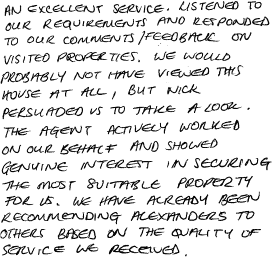 AN EXCELLENT SERVICE. LISTENED TO
OUR REQUIREMENTS AND RESPONDED
TO OUR COMMENTS/FEEDBACK ON
VISITED PROPERTIES. WE WOULD
PROBABLY NOT HAVE VIEWED THIS
HOUSE AT ALL, BUT NICK
PERSUADED US TO TAKE A LOOK.
THE AGENT ACTIVELY WORKED
ON OUR BEHALF AND SHOWED
GENUINE INTEREST IN SECURING
THE MOST SUITABLE PROPERTY
FOR US. WE HAVE ALREADY BEEN
RECOMMENDING ALEXANDERS TO
OTHERS BASED ON THE QUALITY OF
SERVICE WE RECEIVED.